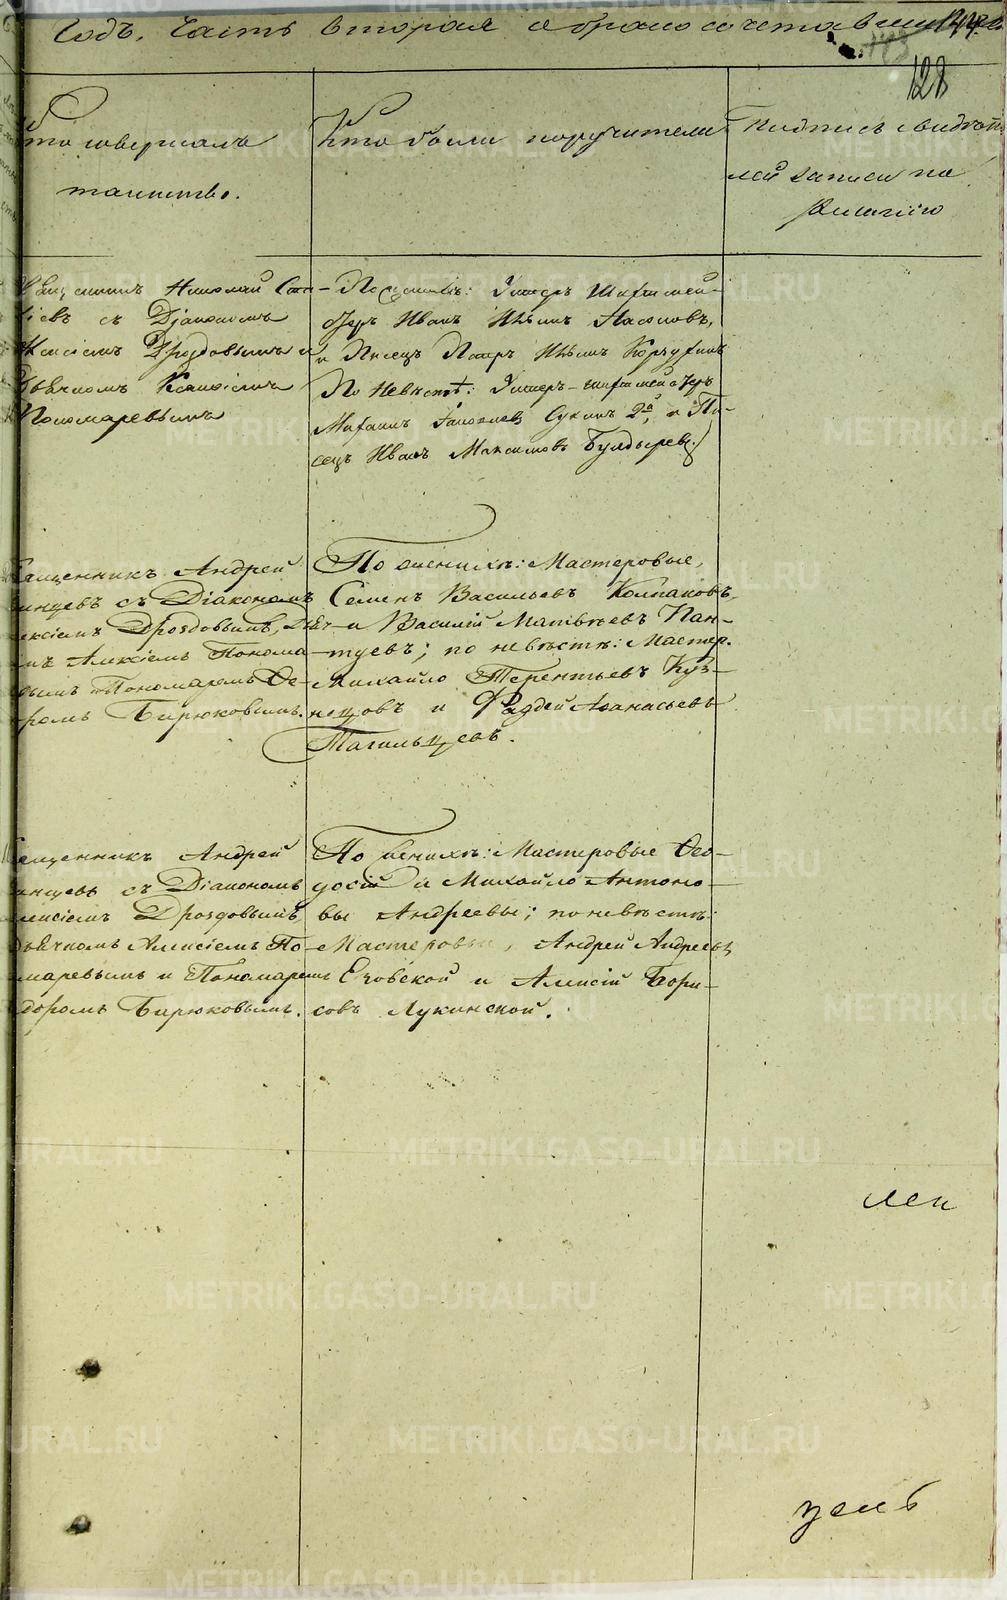 Годъ, Часть вторая о бракосочетавшихся
128
Кто совершалъ
таинство.
Кто были поручители
Подпись свидѣте
лей записи по
желанію
Священникъ Николай
Діакономъ
Алексіемъ Дроздовымъ и
Дьячкомъ Алексіемъ
Пономаревымъ
По женихѣ: Унтеръ Шихтмей-
стеръ Иванъ
и Писецъ Петръ
По невѣстѣ: Унтеръ-шихтмейстеръ
Сукинъ 2й, и Пи-
сецъ Иванъ Максимовъ Булдыревъ.
ященникъ Андрей
инцевъ съ Діакономъ
ексіемъ Дроздовымъ, Дья-
мъ Алексіемъ Понома
вымъ и Пономаремъ Ѳе-
ромъ Бирюковымъ.
По женихѣ: Мастеровые,
Семенъ Васильевъ Колпаковъ,
и Василій Матвѣевъ Пан-
туевъ; по невѣстѣ: Мастер.
Михайло Терентьевъ Куз-
нецовъ и Фаддей Аѳанасьевъ
Тагильцевъ.
ященникъ Андрей
инцевъ съ Діакономъ
лексіемъ Дроздовымъ,
Дьячкомъ Алексіемъ По-
маревымъ и Пономаремъ
доромъ Бирюковымъ.
По женихѣ: Мастеровые Ѳео-
досій и Михайло Антоно-
вы Андреевы; по невѣстѣ:
Мастеровые, Андрей Андреевъ
Езовской и Алексій Бори-
совъ Лукинской.
METRIKI.GASO-URAL.RU